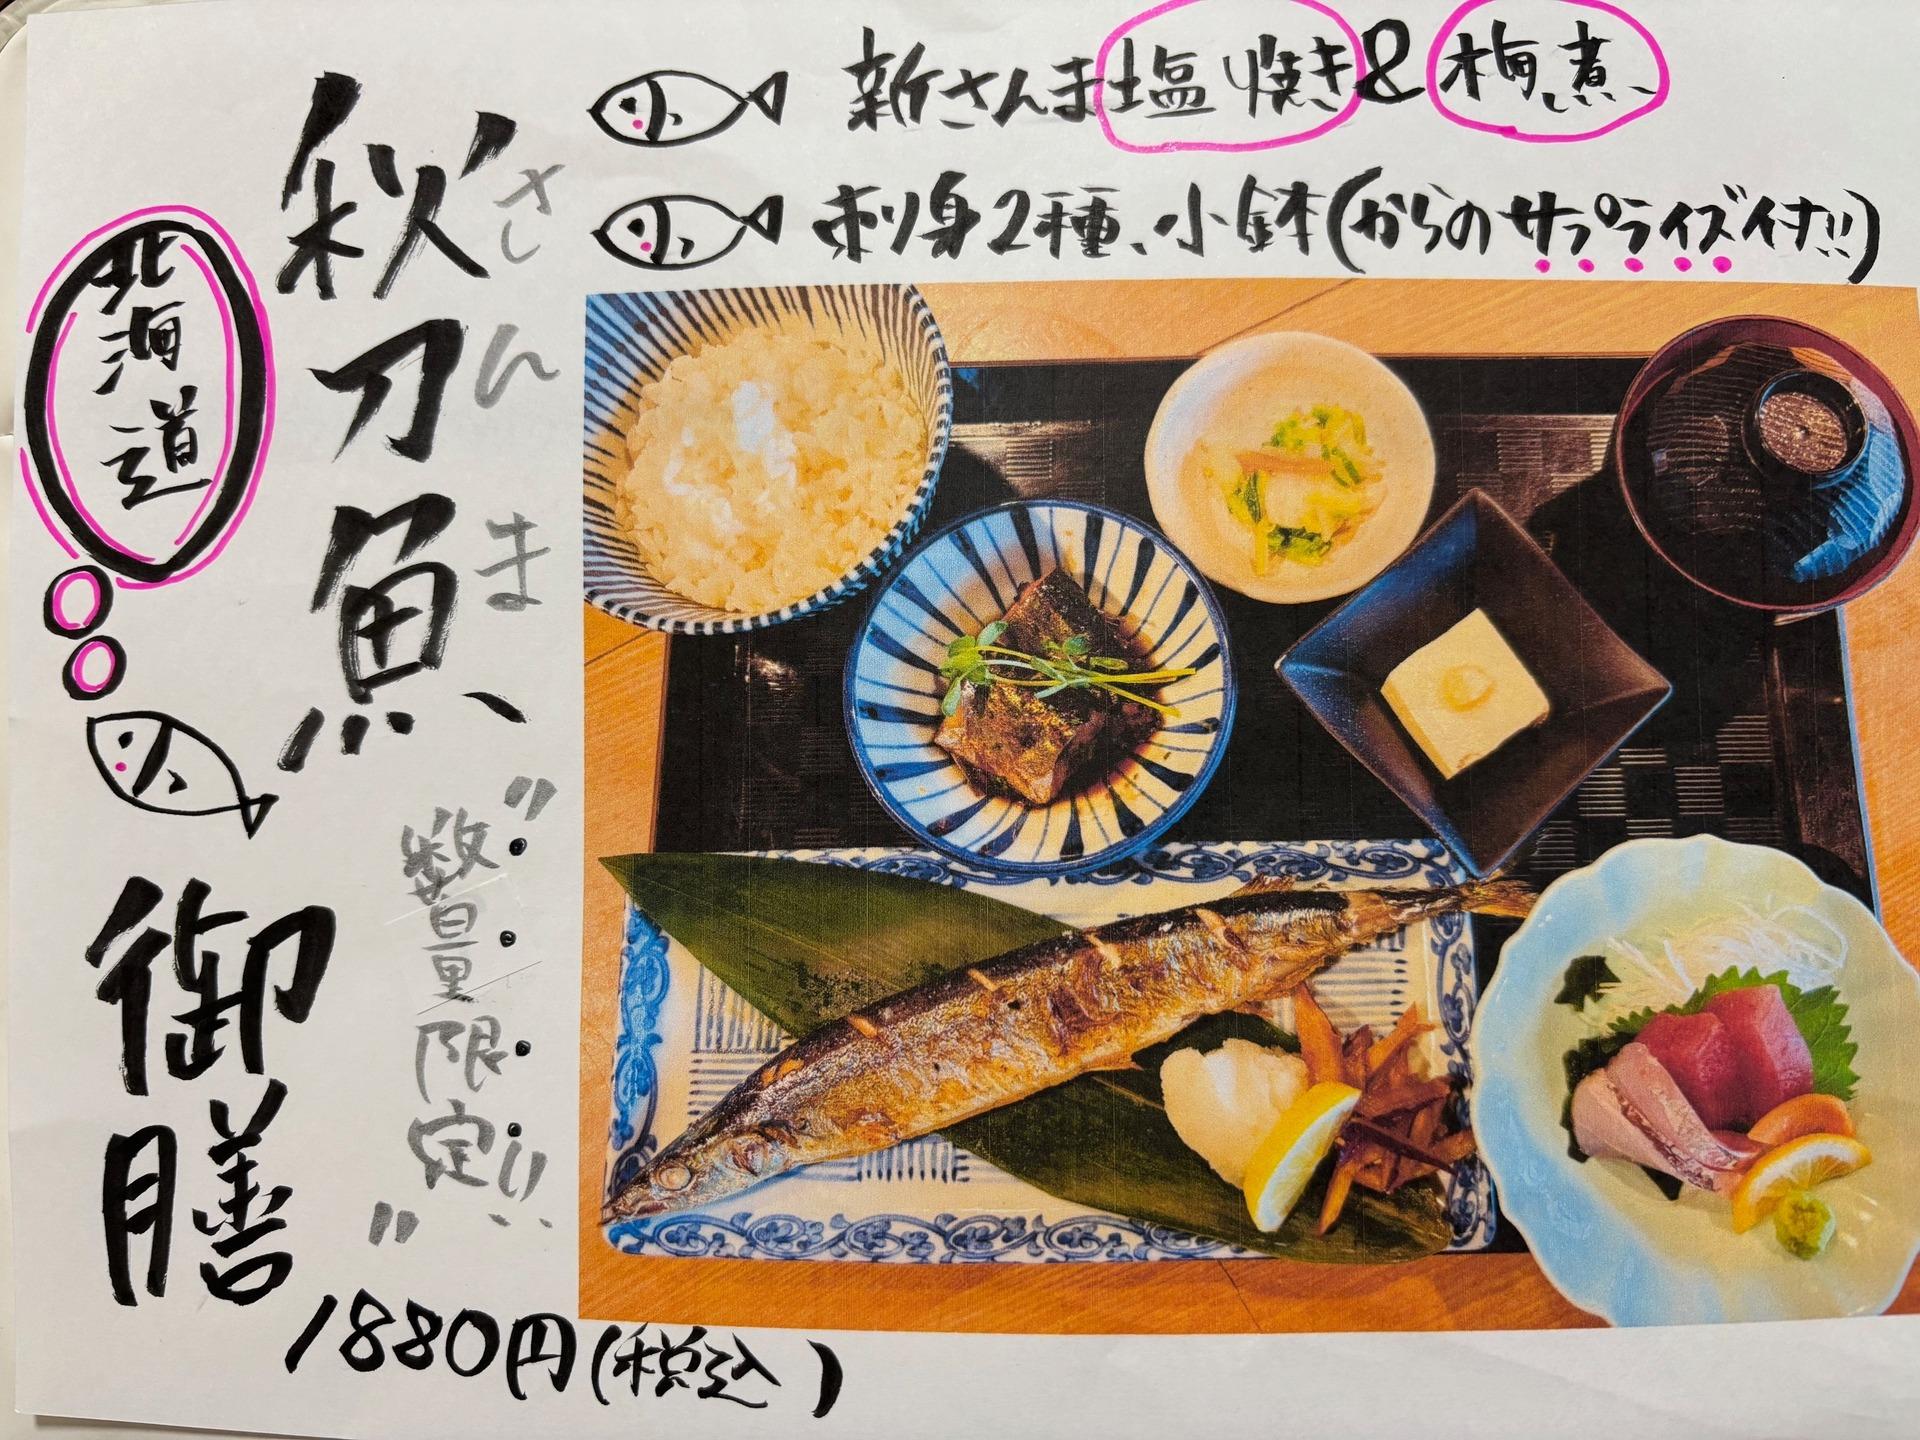 新さんま塩焼き&梅煮
刺身2種、小鉢(からのサプライズ付!!)
北海道
秋刀魚
さんま
御膳
"数量限定!!"
1880円(税込)